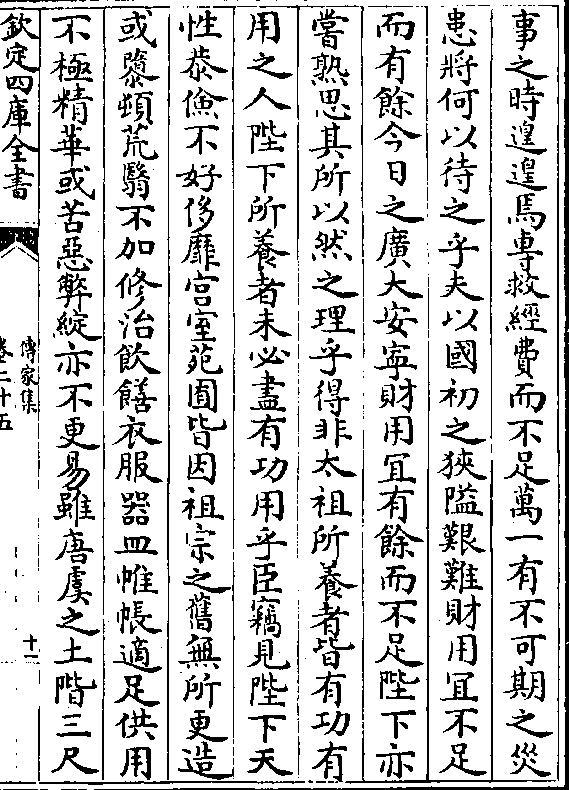 事之時遑遑焉專救經費而不足萬一有不可期之災
患將何以待之乎夫以國初之狹隘艱難財用宜不足
而有餘今日之廣大安寧財用冝有餘而不足陛下亦
嘗熟思其所以然之理乎得非太祖所養者皆有功有
用之人陛下所養者未必盡有功用乎臣竊見陛下天
性恭儉不好侈靡宫室苑囿皆因祖宗之舊無所更造
或隳頓荒翳不加修治飲饍衣服器皿帷帳適足供用
不極精華或苦惡弊綻亦不更易雖唐虞之土階三尺
欽定四庫全書
傳家集
卷二十五
十二